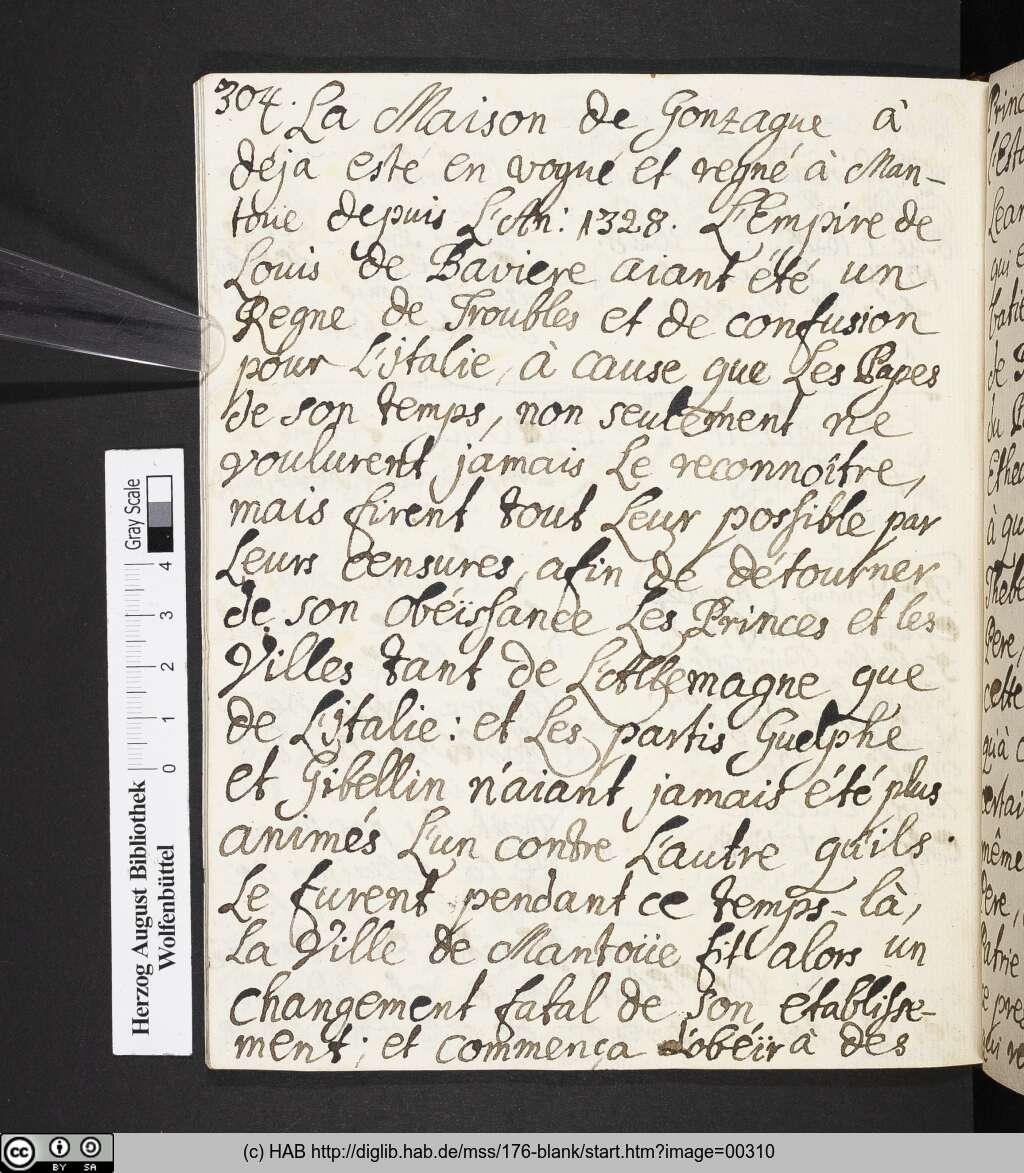 304. La Maison de Gonzague à
déja esté en vogue et regné à Man-
toüe depuis L'An: 1328. L'Empire de
Louis de Baviere aiant été un
Regne de Troubles et de confusion
pour L'Italie, à cause que Les Papes
de son temps, non seulement ne
voulurent jamais Le reconnoître,
mais firent tout Leur possible par
Leurs censures, afin de détourner
de son obéissance Les Princes et les
Villes tant de L'Allemagne que
de L'Italie: et Les partis Guelphe
et Gibellin n'aiant jamais été plus
animés L'un contre L'autre qu'ils
Le furent pendant ce temps-là,
La Ville de Mantoüe fit alors un
changement fatal de son établisse-
ment; et commença d'obéïr à des
Gray Scale
0 1 2 3 4
Herzog August Bibliothek
Wolfenbüttel
cc BY SA
(c) HAB http://diglib.hab.de/mss/176-blank/start.htm?image=00310